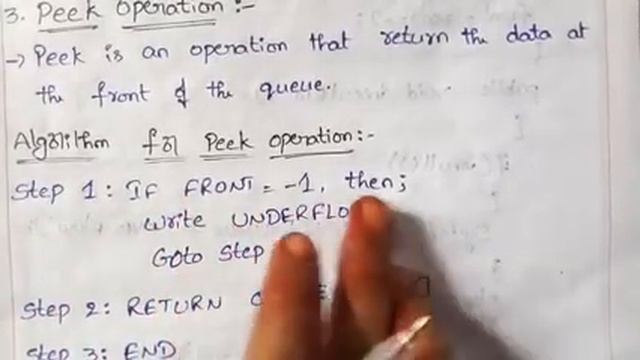 3. Peek Operation:-
→ Peek is an operation that return the data at
the front of the queue.
Algorithm for Peek operation:-
Step 1: IF FRONT = -1, then;
Write UNDERFLO
Goto Step
Step 2: RETURN
Step 3: END